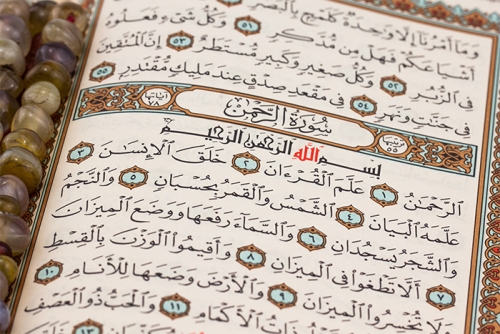 وَمَآ أَمْرُنَآ إِلَّا وَٰحِدَةٌ كَلَمْحٍۭ بِٱلْبَصَرِ
أَشْيَاعَكُمْ فَهَلْ مِن مُّدَّكِرٍ ٥١ وَكُلُّ شَىْءٍ فَعَلُوهُ
فِى ٱلزُّبُرِ ٥٢ وَكُلُّ صَغِيرٍ وَكَبِيرٍ مُّسْتَطَرٌ ٥٣ إِنَّ ٱلْمُتَّقِينَ
فِى جَنَّٰتٍ وَنَهَرٍ ٥٤ فِى مَقْعَدِ صِدْقٍ عِندَ مَلِيكٍ مُّقْتَدِرٍۭ ٥٥
ترتيبها ٥٥ سُورَةُ ٱلرَّحْمَٰنِ آياتها ٧٨
بِسْمِ ٱللَّهِ ٱلرَّحْمَٰنِ ٱلرَّحِيمِ
ٱلرَّحْمَٰنُ ١ عَلَّمَ ٱلْقُرْءَانَ ٢ خَلَقَ ٱلْإِنسَٰنَ ٣
عَلَّمَهُ ٱلْبَيَانَ ٤ ٱلشَّمْسُ وَٱلْقَمَرُ بِحُسْبَانٍ ٥ وَٱلنَّجْمُ
وَٱلشَّجَرُ يَسْجُدَانِ ٦ وَٱلسَّمَآءَ رَفَعَهَا وَوَضَعَ ٱلْمِيزَانَ
٧ أَلَّا تَطْغَوْا۟ فِى ٱلْمِيزَانِ ٨ وَأَقِيمُوا۟ ٱلْوَزْنَ بِٱلْقِسْطِ
وَلَا تُخْسِرُوا۟ ٱلْمِيزَانَ ٩ وَٱلْأَرْضَ وَضَعَهَا لِلْأَنَامِ ١٠
ٱلْأَكْمَامِ ١١ وَٱلْحَبُّ ذُو ٱلْعَصْفِ